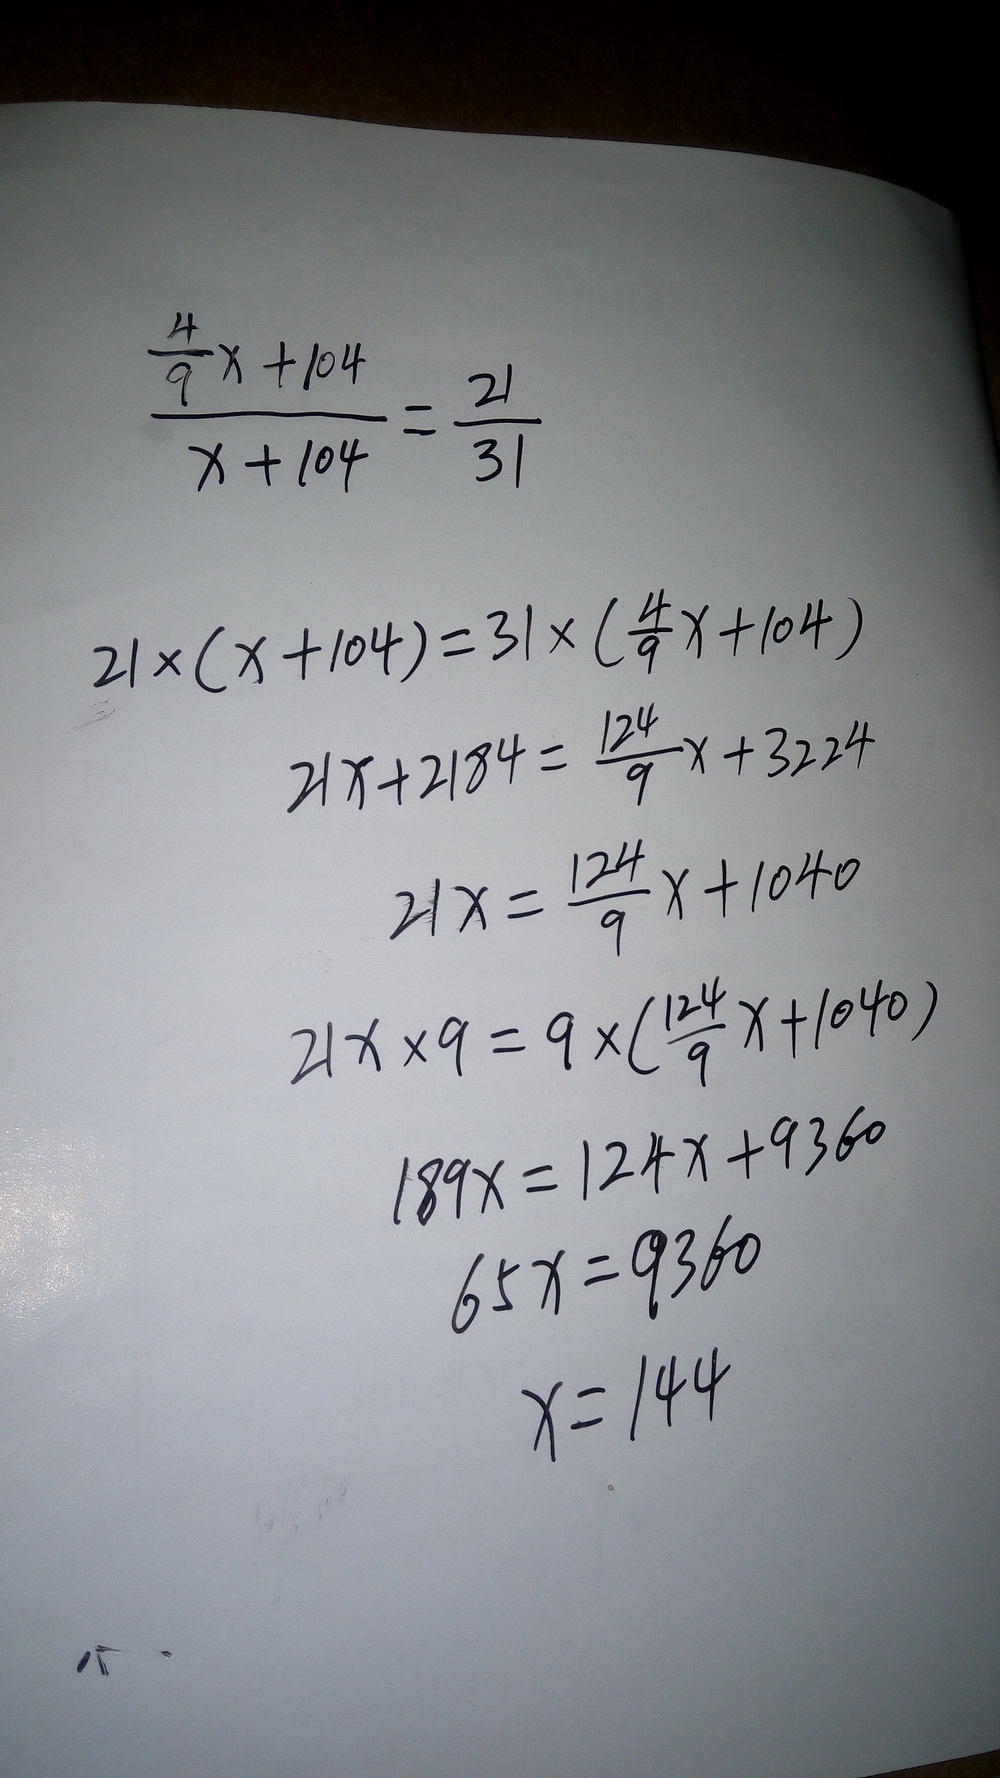 (4/9 x + 104)/(x + 104) = 21/31
21×(x+104)=31×(4/9 x+104)
21x+2184=124/9 x+3224
21x=124/9 x+1040
21x×9=9×(124/9 x+1040)
189x=124x+9360
65x=9360
x=144